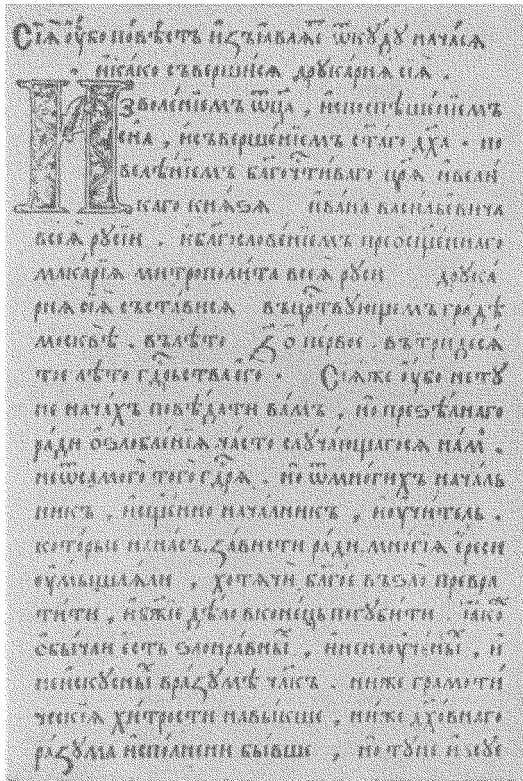 Сїѧ̀ ᲂу҆́бо по́вѣсть и҆з̾ѧвлѧ́етъ ѿкꙋ́дꙋ нача́сѧ
и҆ка́ко съверши́сѧ дрꙋка́рнѧ сїѧ̀ .
И҆зволе́нїемъ ѻ҆ц҃а̀ , и҆поспѣше́нїемъ
сн҃а , и҆съверше́нїемъ ст҃а́го дх҃а . по
велѣ́нїемъ бл҃гочⷭ҇ти́ваго цр҃ѧ̀ и҆вели́
каго кнѧ́ѕѧ и҆ва́на васи́льевича
всеѧ̀ рꙋсі́и . и҆бл҃гослове́нїемъ преѡсщ҃е́ннаго
мака́рїѧ митрополи́та всеѧ̀ рꙋсі́и дрꙋка́
рнѧ сїѧ̀ съста́висѧ въцрⷭ҇твꙋ́ющемъ гра́дѣ
москвѣ̀ . въ лѣ́то ҂з҃о пе́рвое . въ тридесѧ́
ти лѣ́то гдⷭ҇рьства є҆го̀ . Сїѧ́же ᲂу҆́бо не тꙋ́
не нача́хъ повѣ́дати ва́мъ , но̀ преѕѣ́лнаго
ра́ди ѡ҆ѕлобле́нїѧ ча́сто слꙋча́ющагосѧ на́мъ .
не ѿ самого̀ того̀ гдⷭ҇рѧ . но̀ ѿ мно́гихъ нача́ль
никъ , и҆сщ҃е́нно нача́лникъ , и҆ᲂу҆чи́тель .
кото́рые на на́съ . за́висти ра́ди мно́гїѧ є҆́реси
ᲂу҆мышлѧ́ли , хотѧ́чи бл҃го́е въ ѕло̀ превра
ти́ти , и҆бж҃їе дѣ́ло вконе́цъ погꙋби́ти . ꙗ҆́коже
ѻ҆бы́чай є҆́сть ѕлонра́вныⷯ , и҆ненаꙋче́ныⷯ , и҆
неискꙋ́сныⷯ в ра́зꙋмѣ чл҃къ . ни́же грамоти́
ческїѧ хи́трости навы́кше , ни́же дх҃о́внаго
ра́зꙋма и҆спо́лнени бы́вше , но̀ тꙋ́не и҆ всꙋе